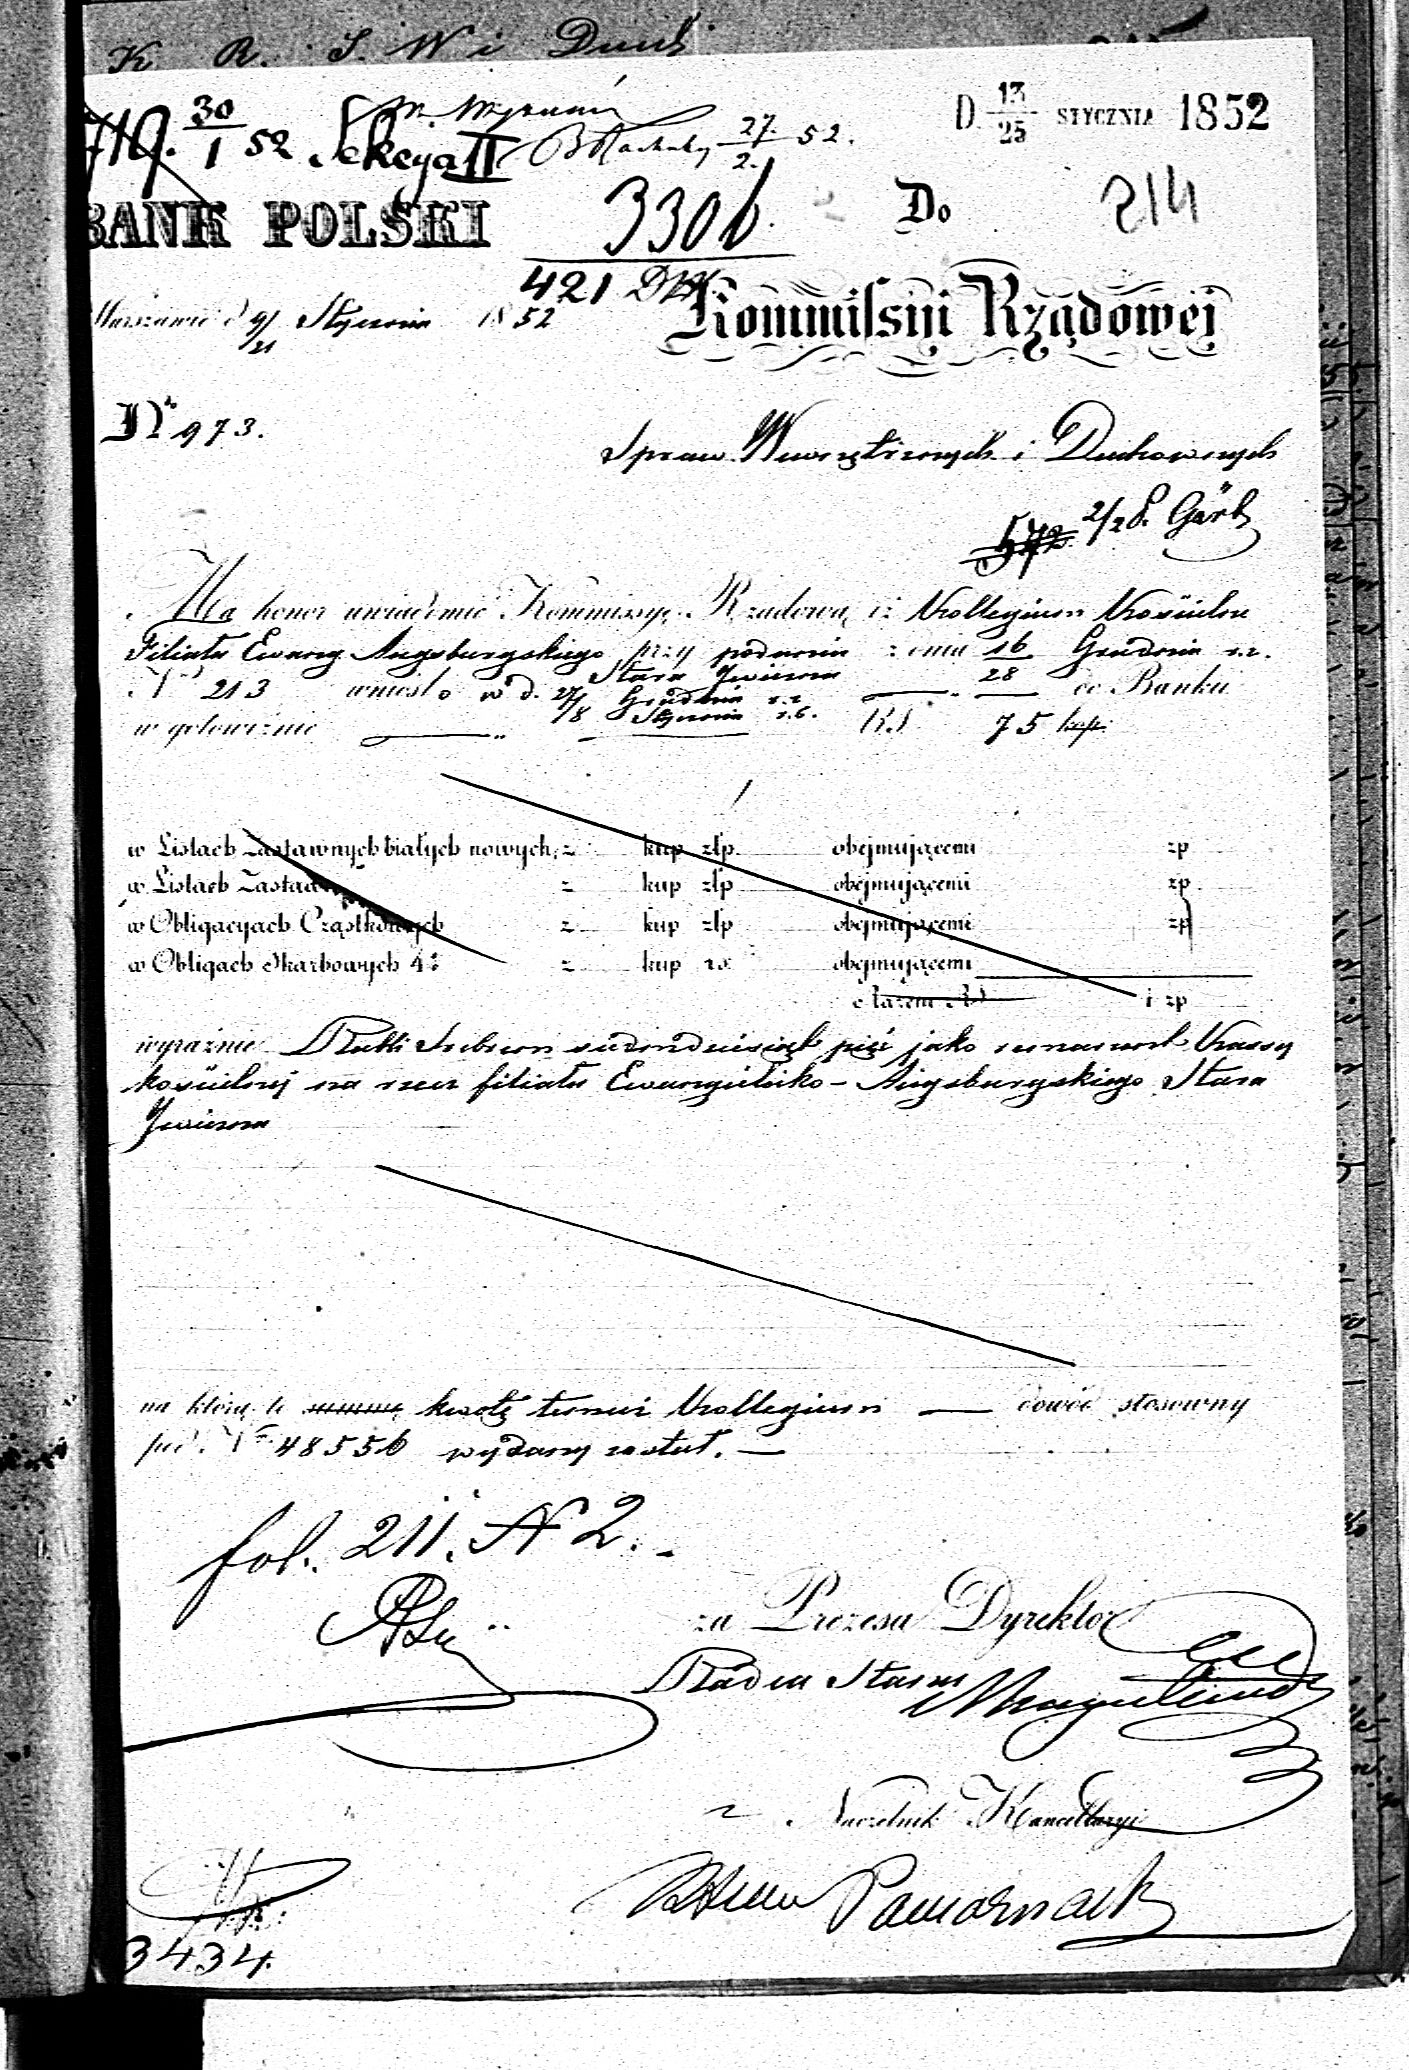 K. R. S. W i Duch
719. 30/1 52 Sekcya II 27/2. 52.
D. 13/25 STYCZNIA 1852
BANK POLSKI
3306.
Do
214
421
Warszawie d 9/21 Stycznia 1852
Kommissyi Rządowej
No 973.
Spraw Wewnętrznych i Duchownych
572 2/2 8.
Ma honor uwiadomić Kommissyę Rządową, iż Kollegium Kościelne
Filiału Ewang Augsburgskiego przy podaniu z dnia 16/28 Grudnia r.z.
Stara Iwiczna
No 213 wniosło w d. 27/8 Grudnia r.z. Stycznia r.b. do Banku
w gotowiźnie RS 75 kop.
w Listach Zastawnych białych nowych, z kup złp obejmującemi zp
w Listach Zastaw z kup złp obejmującemi zp
w Obligacyach Cząstkowych z kup złp obejmującemi zp
w Obligach Skarbowych 4% z kup rs obejmującemi
Razem RS i zp
wyraźnie Rubli Srebrem siedmdziesiąt pięć jako remanent Kassy
kościelnej na rzecz filiału Ewangielicko-Augsburgskiego Stara
Iwiczna
na którą to summę kwotę temuż Kollegium dowód stosowny
pod No 48556 wydany został.
fol. 211. N 2.
za Prezesa Dyrektor
Radca Stanu
Naczelnik Kancellaryi
3434.